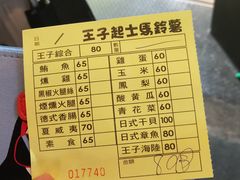 日期 / 王子起士馬鈴薯
王子綜合 80 數量
鮪魚 65 雞蛋 60
燻雞 65 玉米 60
黑椒火腿絲 65 鳳梨 60
煙燻火腿 65 酸黃瓜 60
德式香腸 65 青花菜 60
夏威夷 70 日式干貝 100
素食 65 日式章魚 80
017740 王子海陸 80
合計